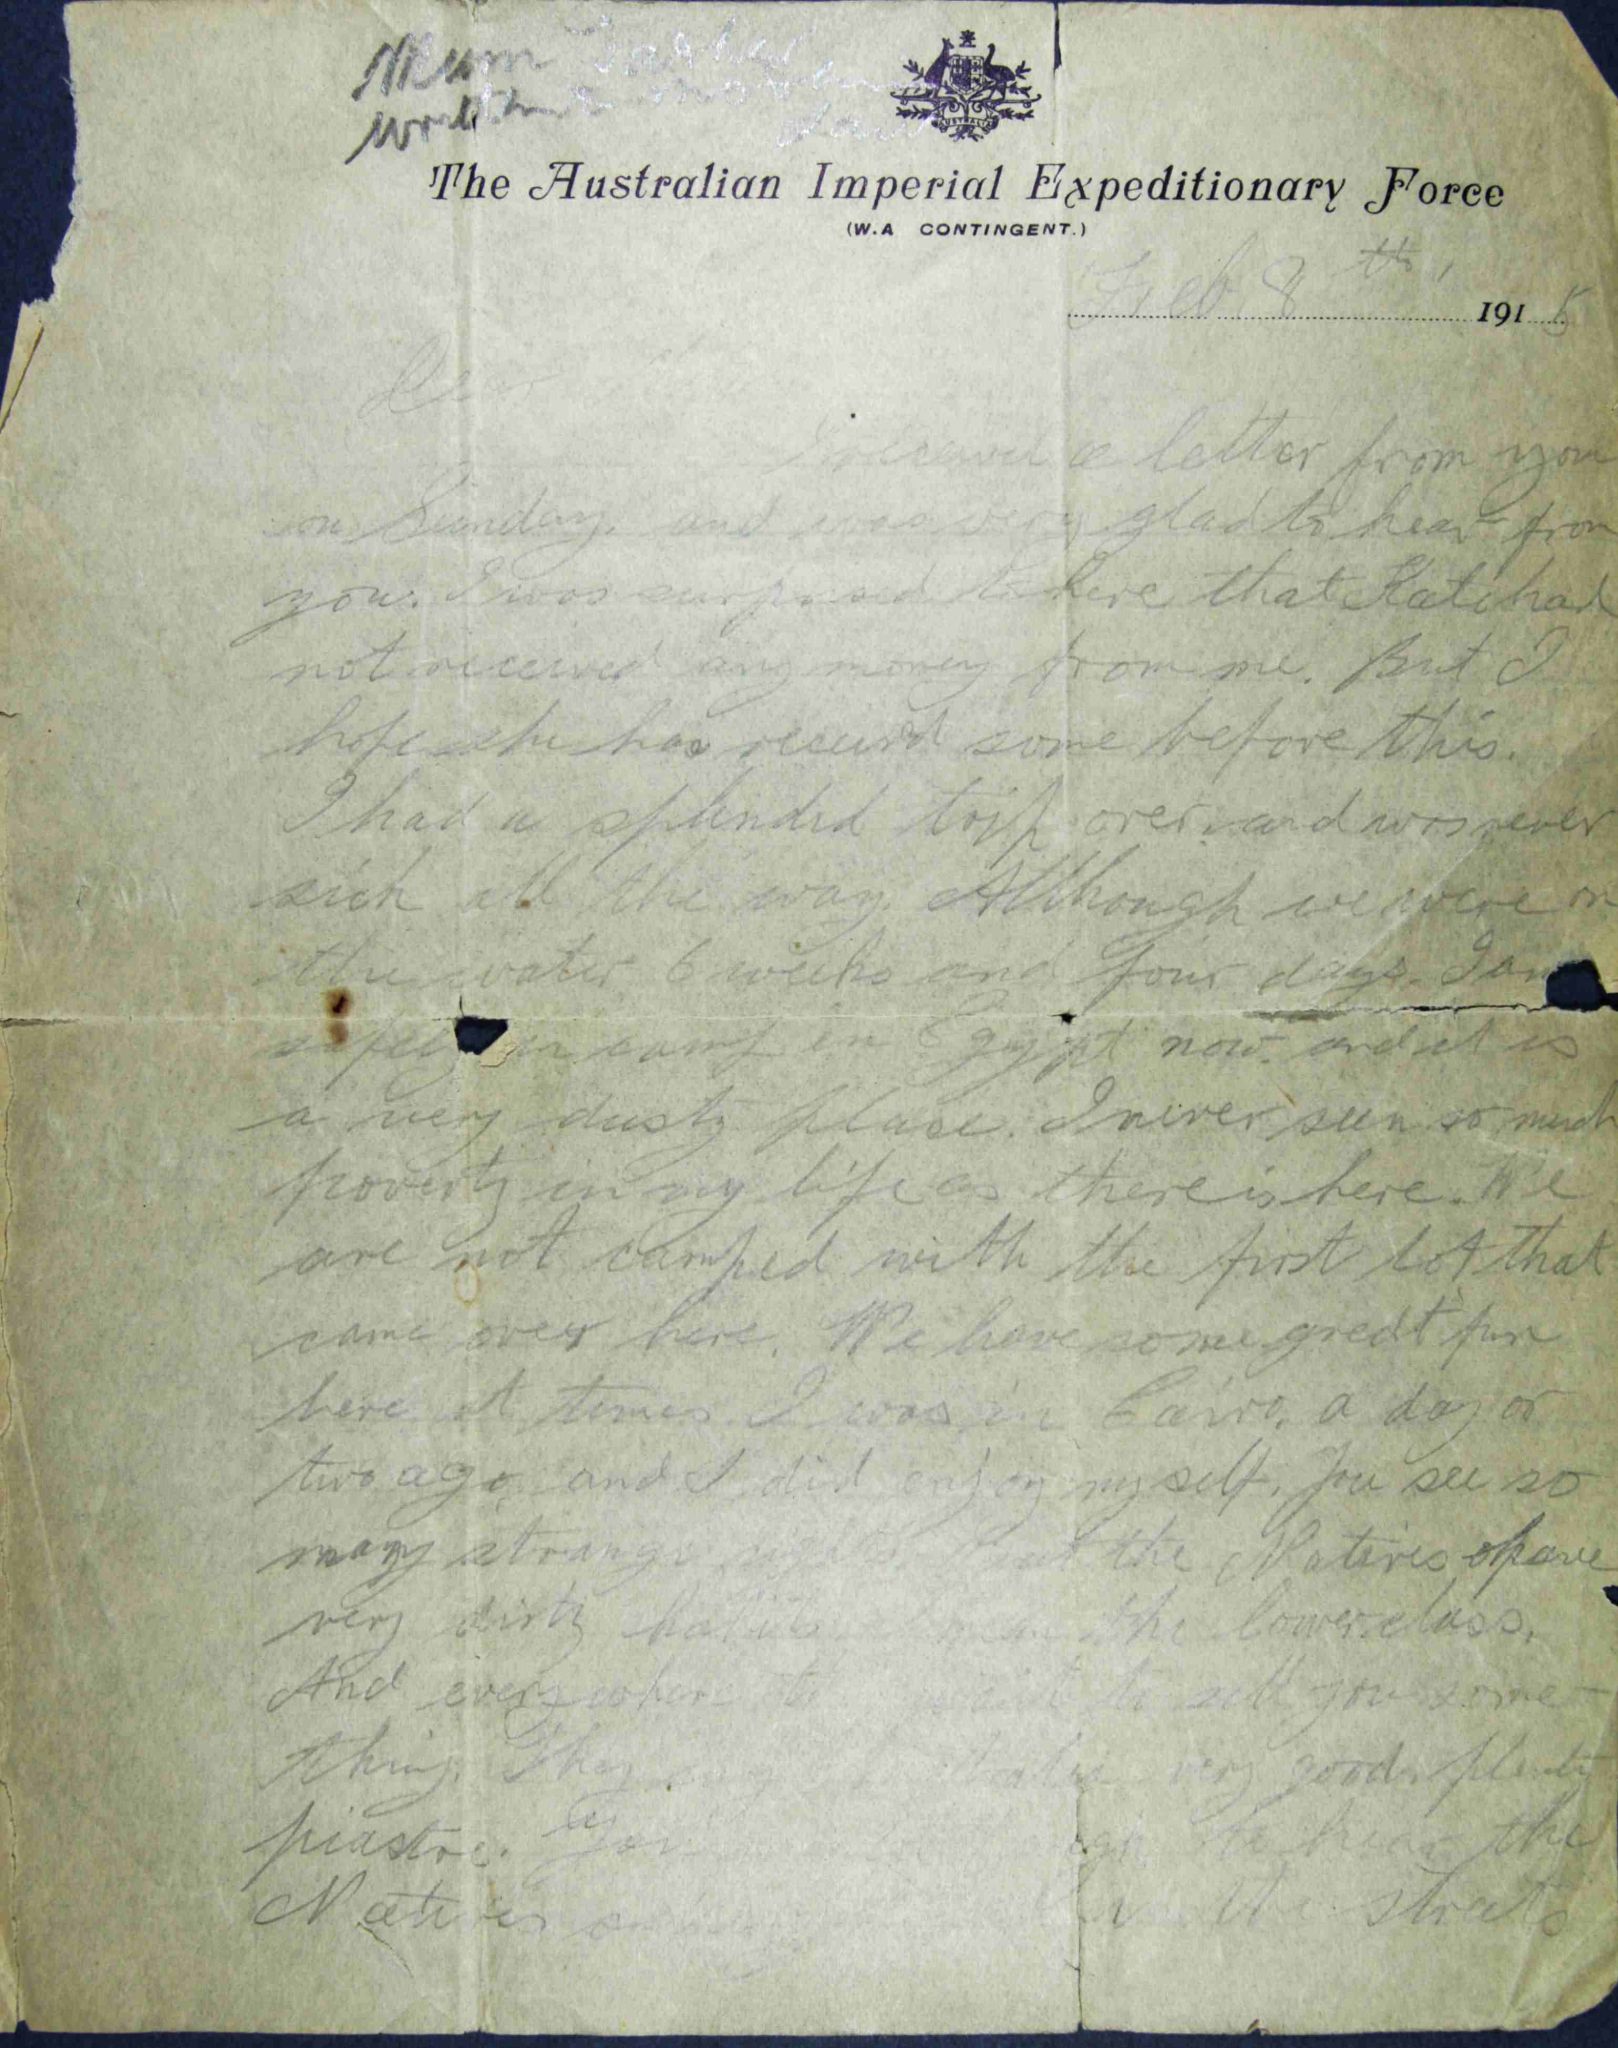 Mum
AUSTRALIA
The Australian Imperial Expeditionary Force
(W.A CONTINGENT.)
Feb 8th, 1915
Dear
I received a letter from you
on Sunday. and was very glad to hear from
you. I was surprised to here that Kate had
not received any money from me. But I
hope she has received some before this.
I had a splended tripp over and was never
sick all the way. Although we were on
the water 6 weeks and four days. I am
safely in camp in Egypt now. and it is
a very dusty place. I never seen so much
poverty in my life as there is here. We
are not camped with the first lot that
came over here. We have some great fun
here at times. I was in Cairo. a day or
two ago. and I did enjoy myself. You see so
many strange sights but the Natives have
very dirty habits I mean the lower class.
And everywhere want to sell you some-
thing. They say very good. plenty
piastre. You to hear the
Natives in the streets